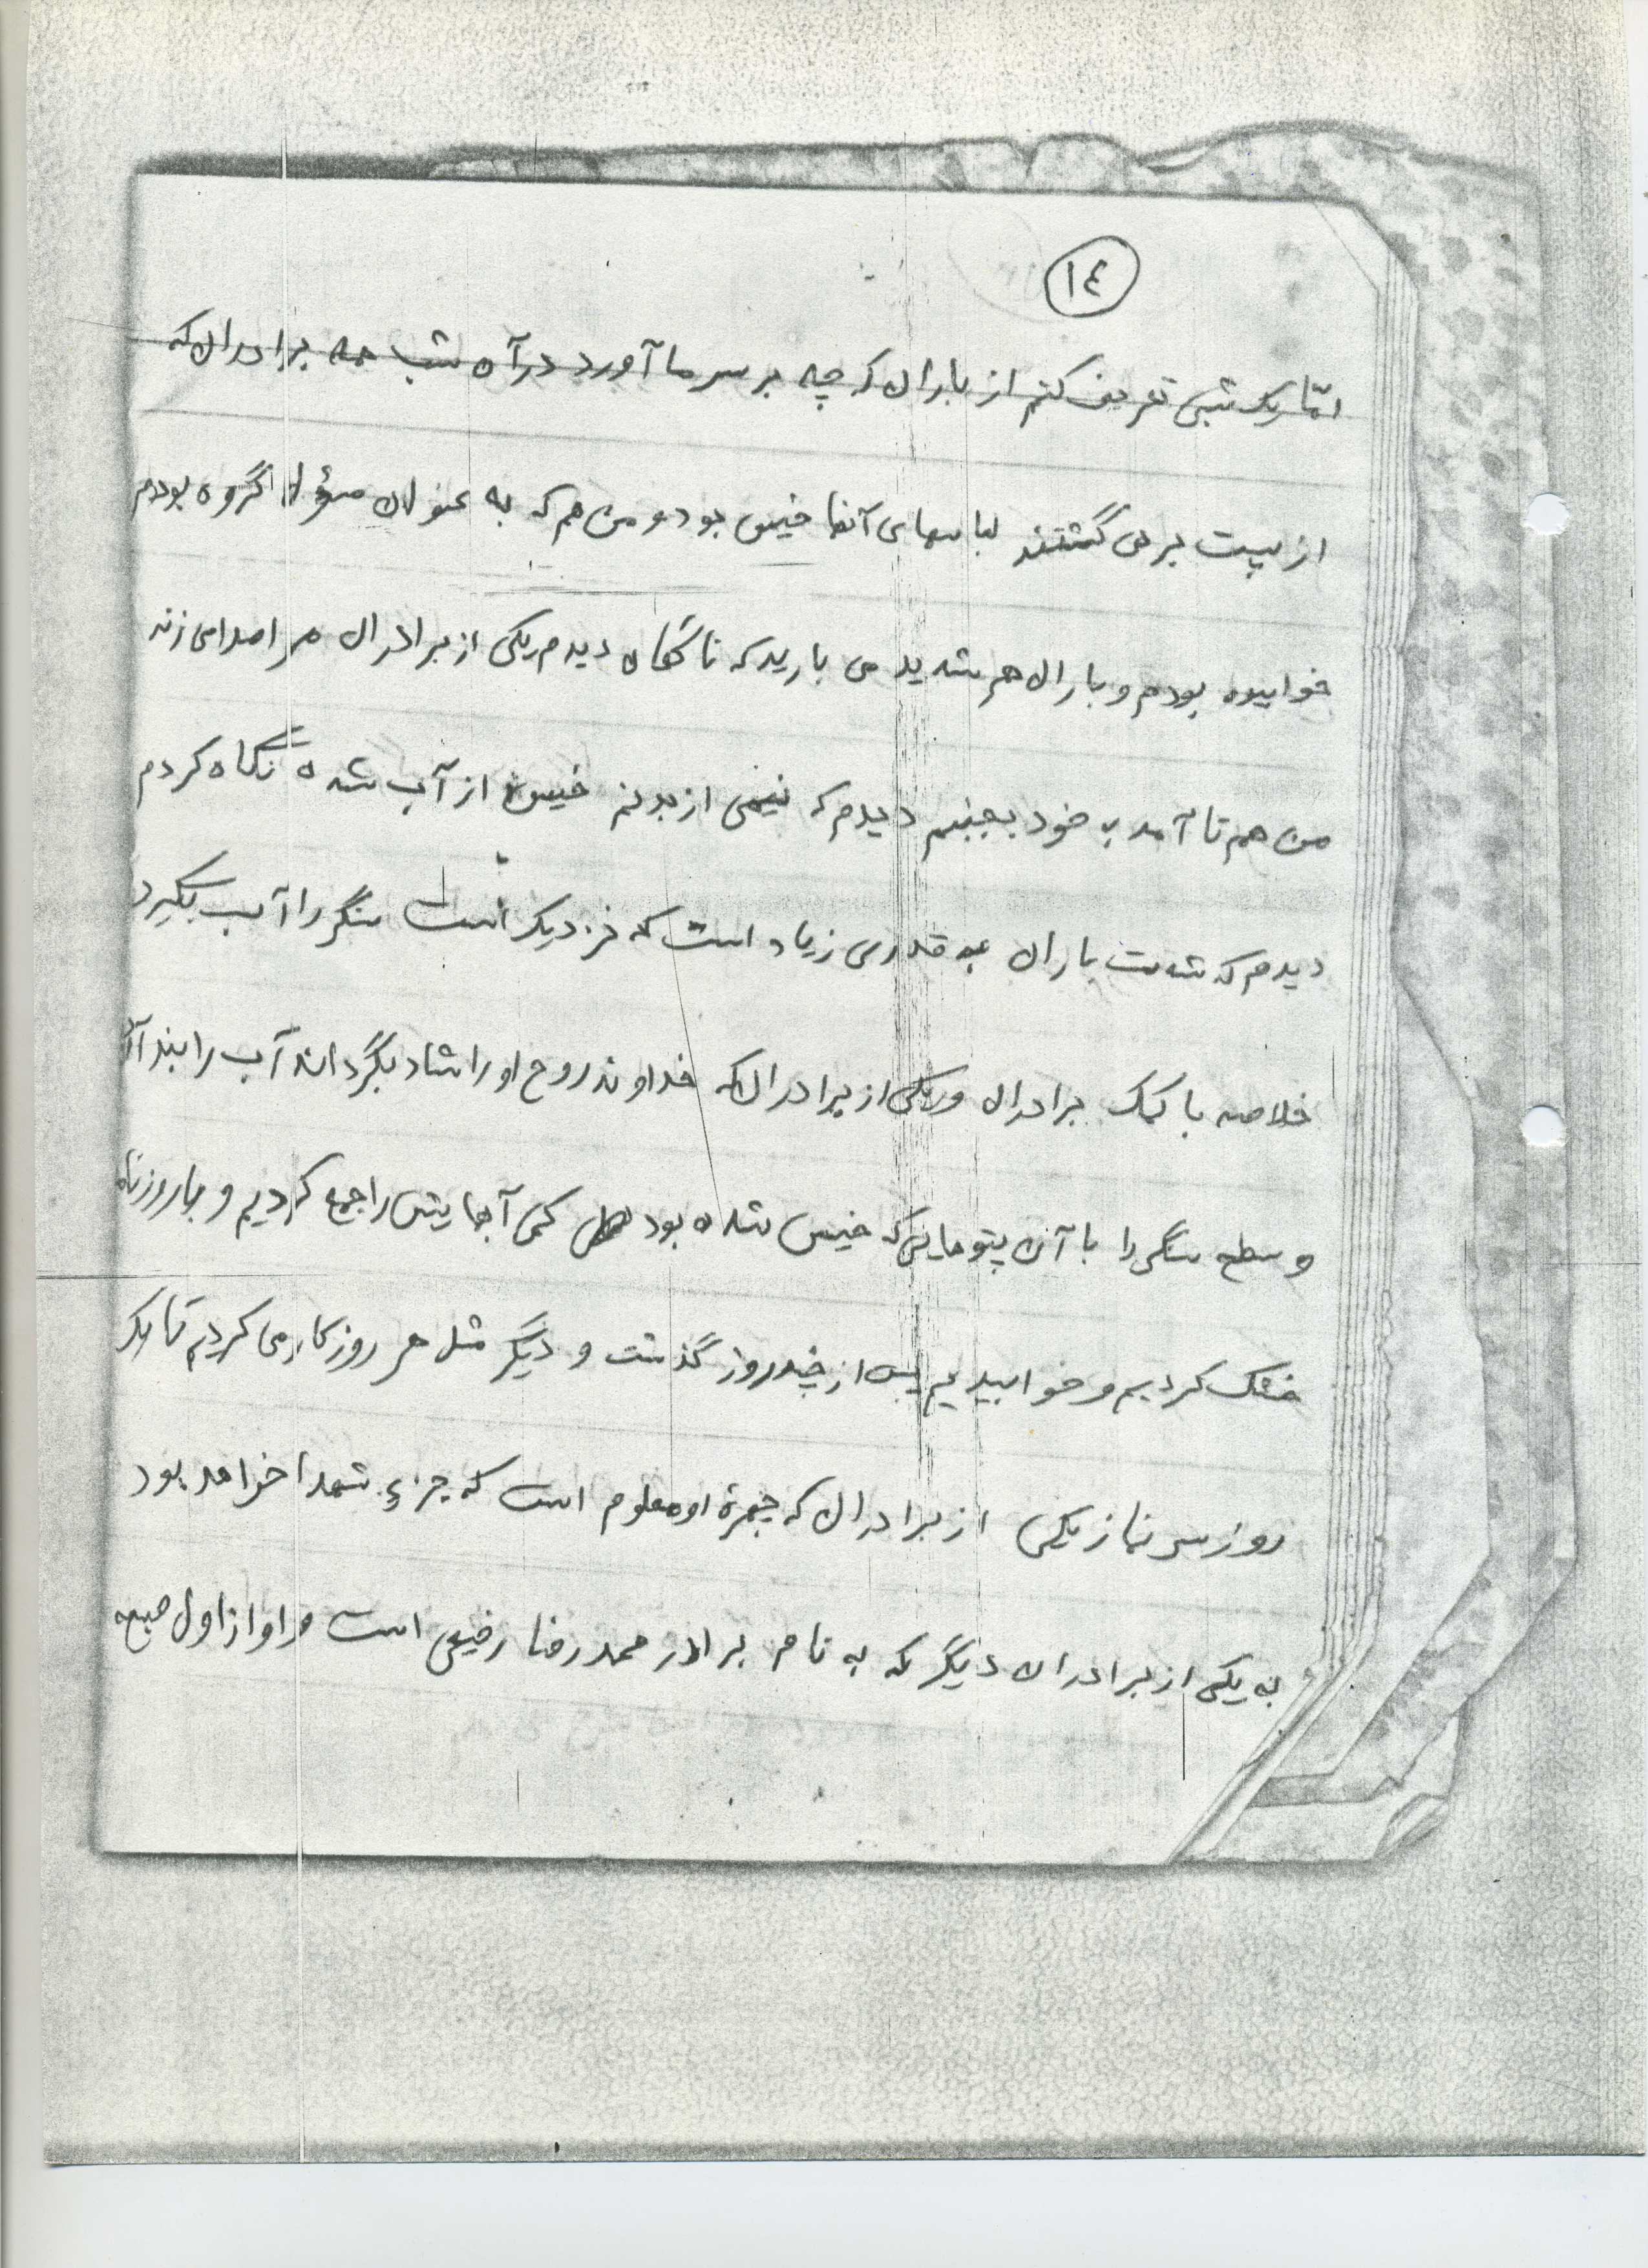 ١٤
امّا یک شبی تعریف کنم از باران که چه بر سر ما آورد در آن شب همه برادران که
از پست بر می گشتند لباسهای آنها خیس بود و من هم که به عنوان مسؤل گروه بودم
خوابیده بودم و باران هم شدید می بارید که ناگهان دیدم یکی از برادران مرا صدا می زند
من هم تا آمد به خود بجنبم دیدم که نیمی از بدنم خیس از آب شده نگاه کردم
دیدم که شدت باران به قدری زیاد است که نزدیک است سنگر را آب بگیرد
خلاصه با کمک برادران و یکی از برادران که خداوند روح او را شاد بگرداند آب را بند
وسطه سنگر را با آن پتوهایی که خیس شده بود کمی آبهایش را جمع کردیم و با روزنامه
خشک کردیم و خوابیدیم پس از چند روز گذشت و دیگر مثل هر روز کار می کردیم تا یک
روز سر نماز یکی از برادران که چهرهٔ او معلوم است که جزء شهدا خواهد بود
به یکی از برادران دیگر که به نام برادر محمد رضا رفیعی است و او از اول صبح